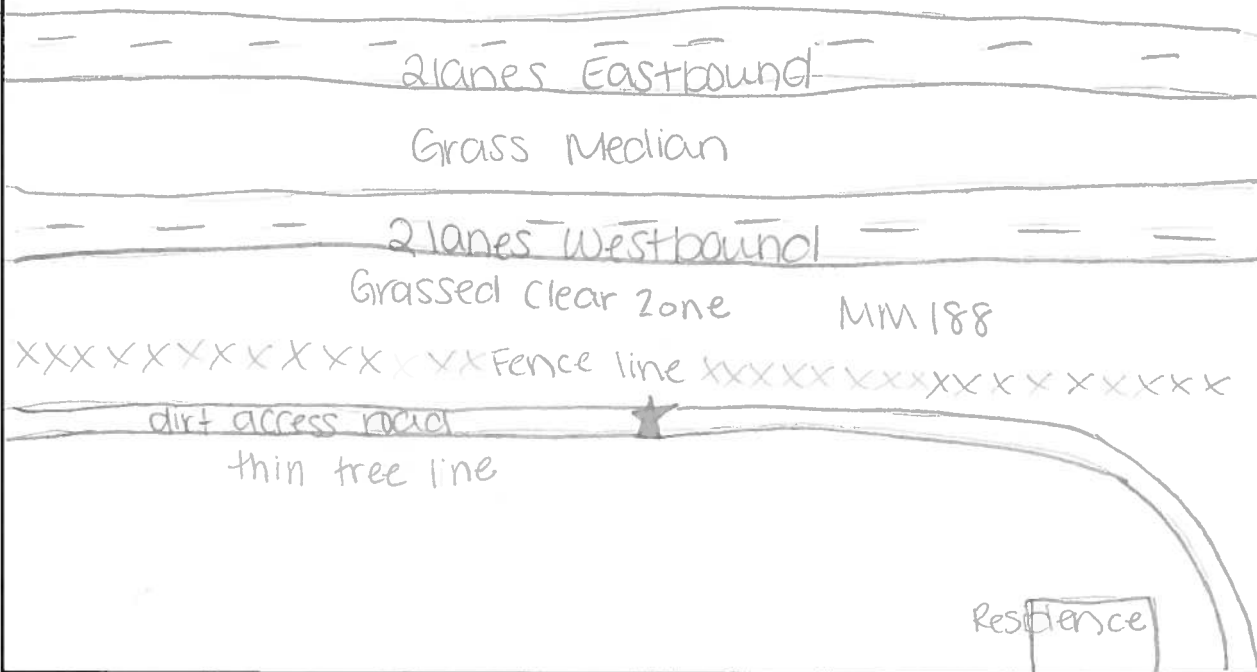 2 lanes Eastbound
Grass Median
2 lanes Westbound
Grassed Clear Zone
MM 188
XXXXXXXXXXXX XX Fence line XXXXXXXXXXXXXXXXX
dirt access road
thin tree line
Residence